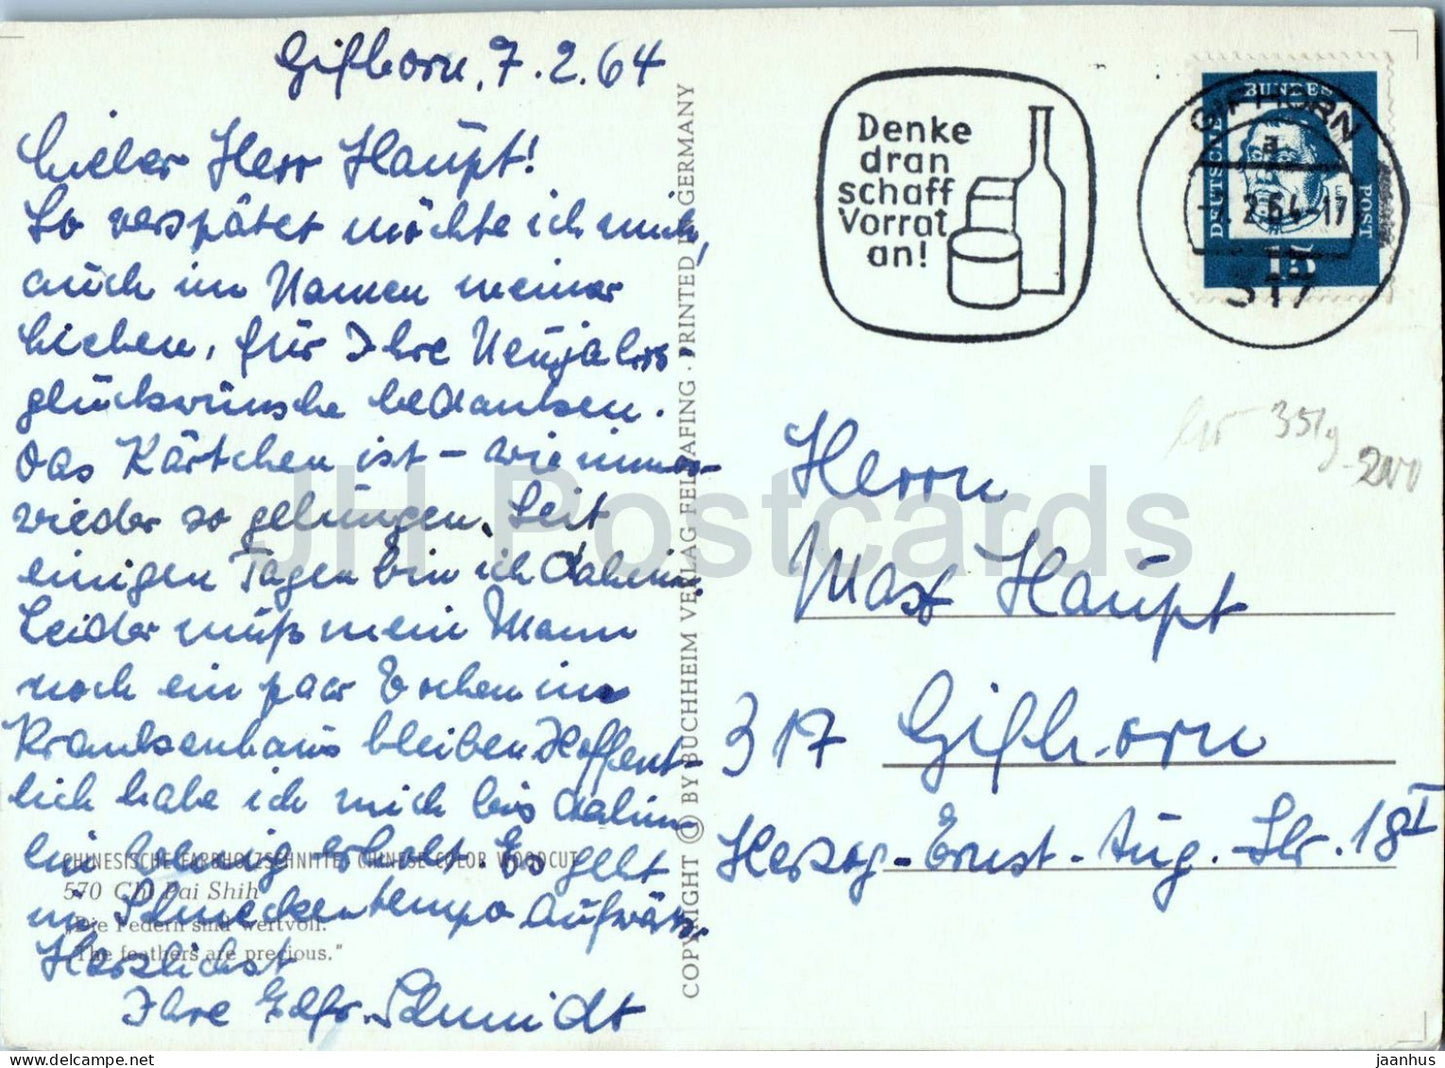 Gifhorn, 7.2.64
Lieber Herr Haupt!
So verspätet möchte ich mich,
auch im Namen meiner
Lieben, für Ihre Neujahrs
glückwünsche bedanken.
Das Kärtchen ist – wie immer
wieder so gelungen. Seit
einigen Tagen bin ich daheim.
Leider muß mein Mann
noch ein paar Wochen im
Krankenhaus bleiben. Hoffent-
lich habe ich mich bis dahin
ein wenig erholt. Es geht
im Schneckentempo aufwärts.
Herzlichst
Ihre Schmidt
CHINESISCHE FARBHOLZSCHNITTE, CHINESE COLOR WOODCUT
570 Chi Pai Shih
„Die Federn sind wertvoll."
"The feathers are precious."
COPYRIGHT © BY BUCHHEIM VERLAG FELDAFING · PRINTED IN GERMANY
Denke
dran
schaff
Vorrat
an!
GIFHORN
a
-7.2.64-17
317
DEUTSCHE
BUNDES
POST
15
351g
-200
Herrn
Max Haupt
317 Gifhorn
Herzog-Ernst-Aug.-Str. 18 I
JH Postcards
jaanhus